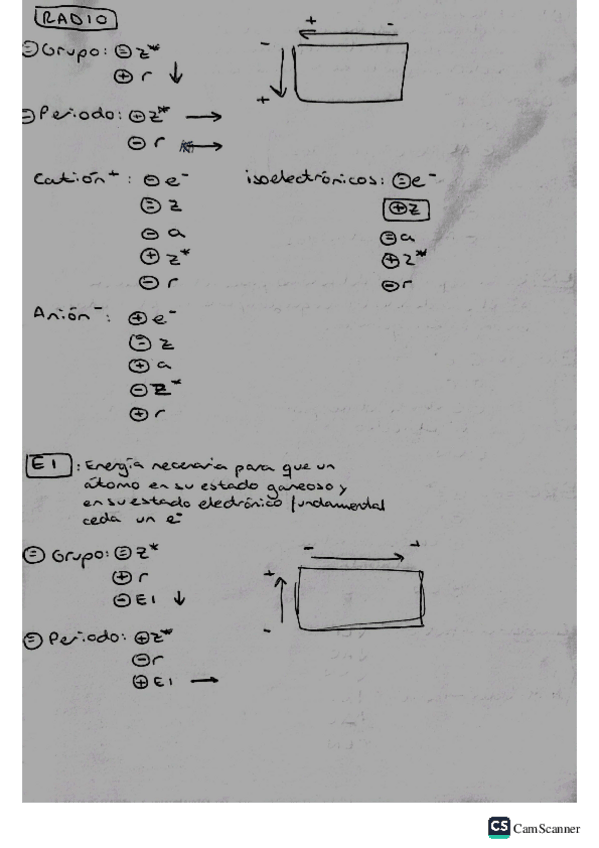 RADIO
+ -
⊜ Grupo: ⊜ Z*
-
⊕ r ↓
+
⊜ Periodo: ⊕ Z* →
⊖ r →
Catión⁺ : ⊖ e⁻
⊜ Z
⊖ a
⊕ Z*
⊖ r
isoelectrónicos: ⊜ e⁻
⊕ Z
⊜ a
⊕ Z*
⊖ r
Anión⁻ : ⊕ e⁻
⊜ Z
⊕ a
⊖ Z*
⊕ r
EI : Energía necesaria para que un
átomo en su estado gaseoso y
en su estado electrónico fundamental
ceda un e⁻
⊜ Grupo: ⊜ Z*
⊕ r
⊖ EI ↓
- +
+
-
⊜ Periodo: ⊕ Z*
⊖ r
⊕ EI →
CS CamScanner